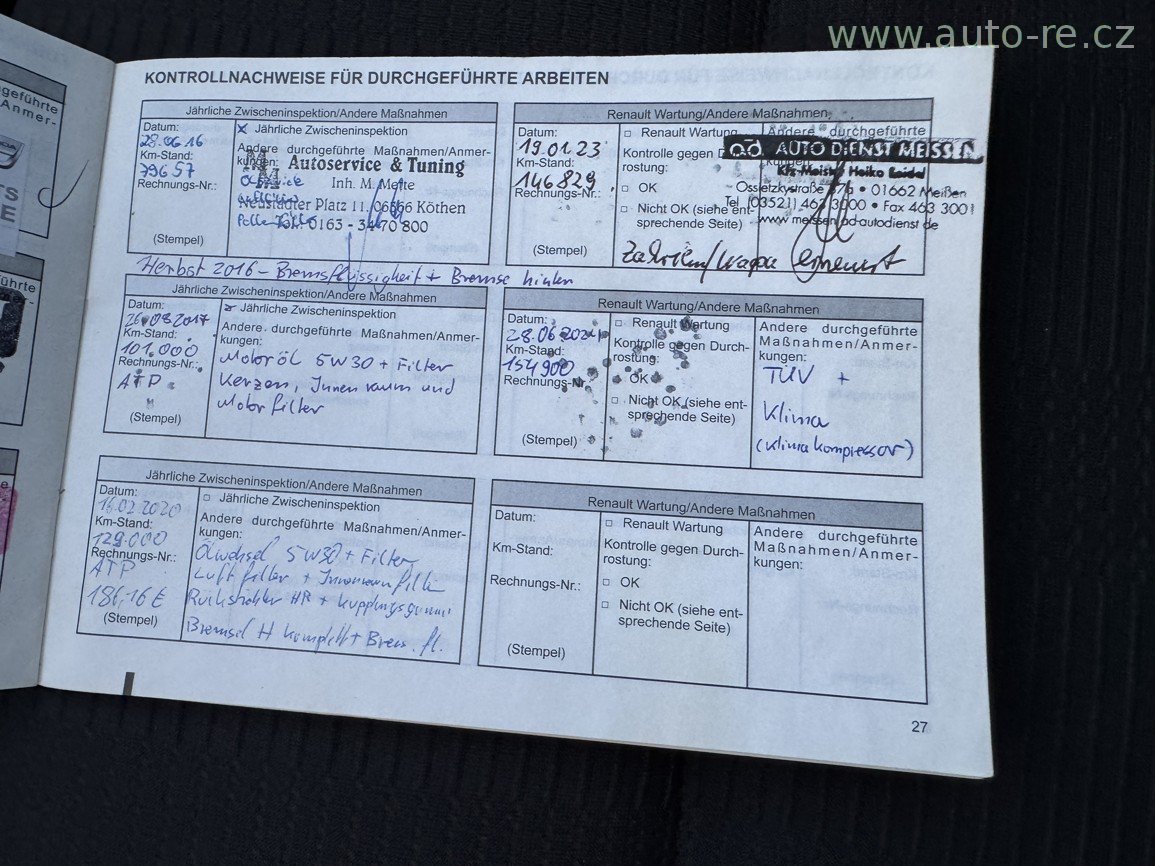 www.auto-re.cz
KONTROLLNACHWEISE FÜR DURCHGEFÜHRTE ARBEITEN
Jährliche Zwischeninspektion/Andere Maßnahmen
Datum:
28.06.16
Km-Stand:
79657
Rechnungs-Nr.:
(Stempel)
Jährliche Zwischeninspektion
Andere durchgeführte Maßnahmen/Anmer-
kungen:
Autoservice & Tuning
Inh. M. Mette
Neustädter Platz 11, 06366 Köthen
Tel. 0163 - 34 70 800
Herbst 2016 - Bremsflüssigkeit + Bremse hinten
Jährliche Zwischeninspektion/Andere Maßnahmen
Datum:
26.08.2017
Km-Stand:
101.000
Rechnungs-Nr.:
ATP
(Stempel)
Jährliche Zwischeninspektion
Andere durchgeführte Maßnahmen/Anmer-
kungen:
Motoröl 5W30 + Filter
Kerzen, Innenraum und
Motorfilter
Jährliche Zwischeninspektion/Andere Maßnahmen
Datum:
16.02.2020
Km-Stand:
129.000
Rechnungs-Nr.:
ATP
186,16 €
(Stempel)
Jährliche Zwischeninspektion
Andere durchgeführte Maßnahmen/Anmer-
kungen:
Ölwechsel 5W30 + Filter
Luftfilter + Innenraumfilter
HR +
H komplett + Brems.fl.
Renault Wartung/Andere Maßnahmen
Datum:
19.01.23
Km-Stand:
146829
Rechnungs-Nr.:
(Stempel)
Renault Wartung
Kontrolle gegen
rostung:
OK
Nicht OK (siehe ent-
sprechende Seite)
Andere durchgeführte
AUTO DIENST MEISSEN
Kfz-Meister Heiko Seidel
01662 Meißen
Tel. (03521) 463 3000 • Fax 463 3001
Zahnriem/Wapu erneuert
Renault Wartung/Andere Maßnahmen
Datum:
28.06.2024
Km-Stand:
154900
Rechnungs-Nr.
(Stempel)
Renault Wartung
Kontrolle gegen Durch-
rostung:
OK
Nicht OK (siehe ent-
sprechende Seite)
Andere durchgeführte
Maßnahmen/Anmer-
kungen:
TÜV +
Klima
(Klimakompressor)
Renault Wartung/Andere Maßnahmen
Datum:
Km-Stand:
Rechnungs-Nr.:
(Stempel)
Renault Wartung
Kontrolle gegen Durch-
rostung:
OK
Nicht OK (siehe ent-
sprechende Seite)
Andere durchgeführte
Maßnahmen/Anmer-
kungen:
27